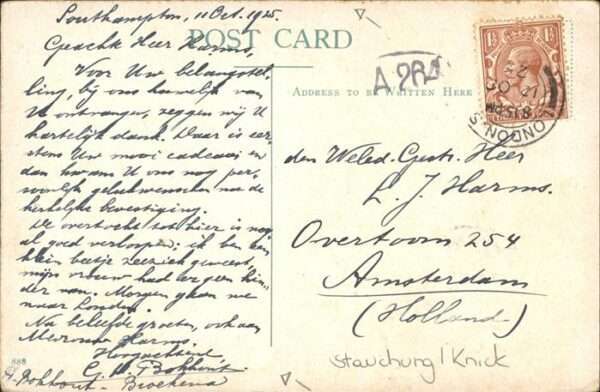 Southampton, 11 Oct. 1925.
Geachte Heer Harms,
POST CARD
Voor Uw belangstel-
ling, bij ons huwelijk van
U ontvangen, zeggen wij U
hartelijk dank. Daar is eer-
stens Uw mooi cadeau en
dan kwam U ons nog per-
soonlijk gelukwenschen na de
kerkelijke bevestiging.
De overtocht tot hier is nog
al goed verloopen; ik ben een
klein beetje zeeziek geweest,
mijn vrouw had er geen hin-
der van. Morgen gaan we
naar Londen.
Na beleefde groeten, ook aan
Mevrouw Harms.
Hoogachtend
C. Bokhout
Bokhout-Broekema
888
A 264
ADDRESS TO BE WRITTEN HERE
1½ 1½
LONDON. S.
8.15 PM
12 OC
25
den Weled. Gestr. Heer
L. J. Harms.
Overtoom 254
Amsterdam
(Holland.)
stauchung / Knick